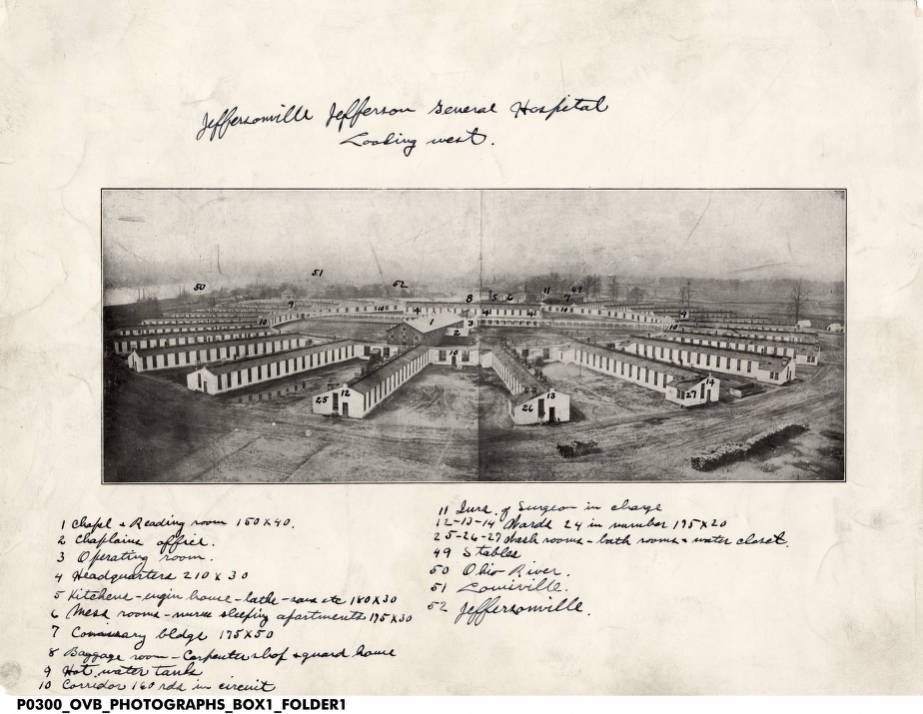 Jeffersonville Jefferson General Hospital
Looking west.
50
51
52
1 Chapel + Reading room 150 x 40.
2 Chaplains office.
3 Operating room.
4 Headquarters 210 x 30
5 Kitchens - engin house - lathe - saws etc 180 x 30
6 Mess rooms - nurse sleeping apartments 175 x 30
7 Comissary bldgs 175 x 50
8 Baggage room - Carpenter shop + guard house
9 Hot water tanks
10 Corridor 160 rds in circuit
11 of Surgeon in charge
12-13-14 Wards 24 in number 175 x 20
25-26-27 Wash rooms - bath rooms + water closet.
49 Stables
50 Ohio River.
51 Louisville.
52 Jeffersonville.
P0300_OVB_PHOTOGRAPHS_BOX1_FOLDER1